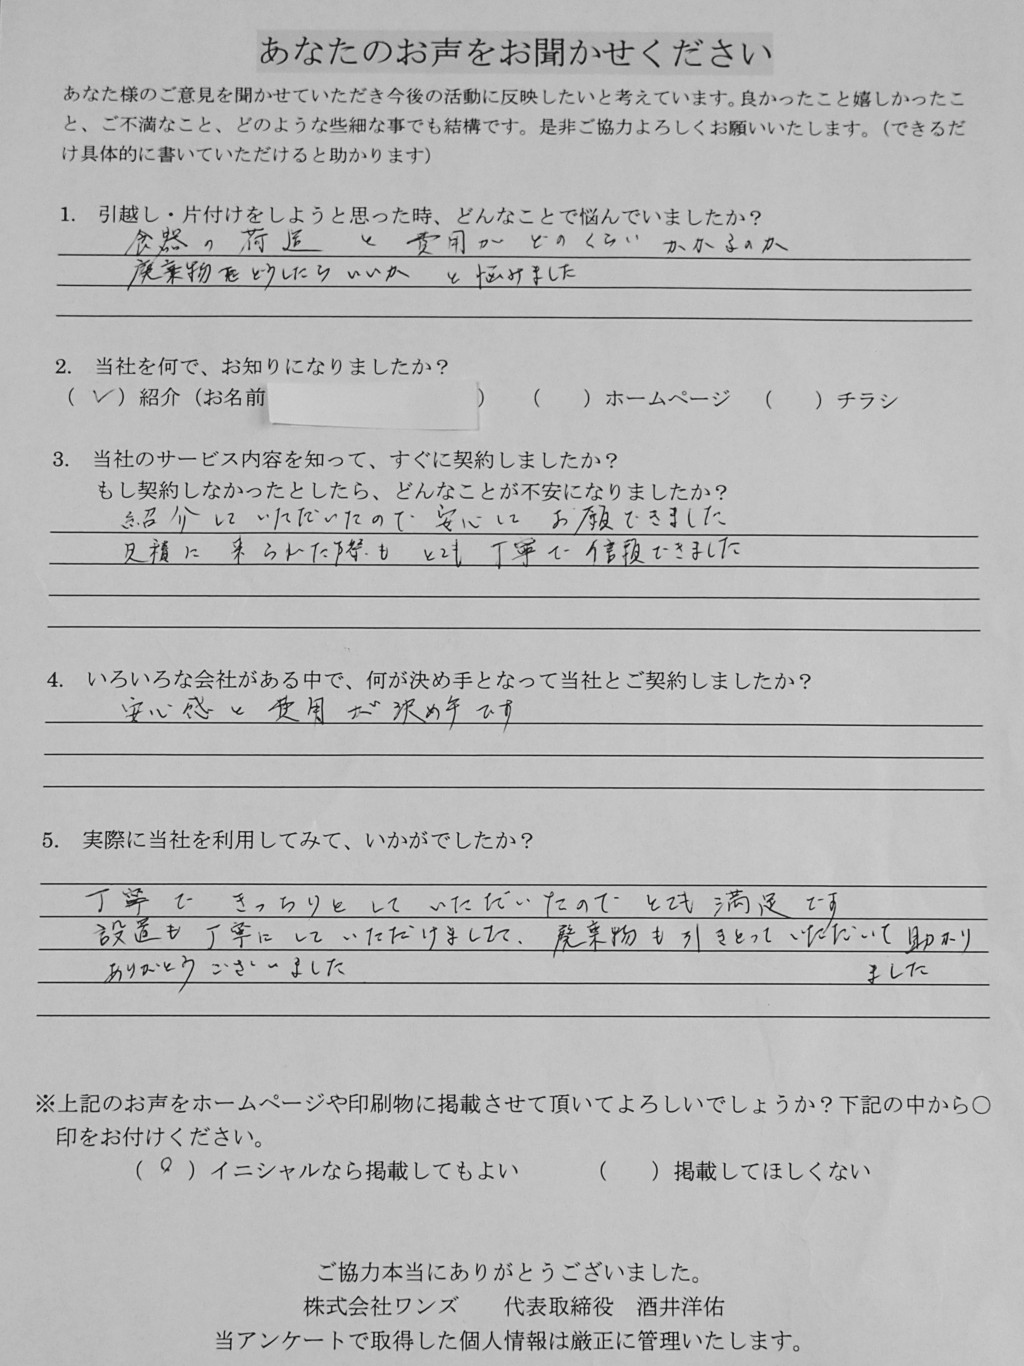 あなたのお声をお聞かせください
あなた様のご意見を聞かせていただき今後の活動に反映したいと考えています。良かったこと嬉しかったこ
と、ご不満なこと、どのような些細な事でも結構です。是非ご協力よろしくお願いいたします。（できるだ
け具体的に書いていただけると助かります）
1. 引越し・片付けをしようと思った時、どんなことで悩んでいましたか？
食器の荷造と費用がどのくらいかかるのか
廃棄物をどうしたらいいか と悩みました
2. 当社を何で、お知りになりましたか？
（ ✓ ）紹介（お名前 ） （ ）ホームページ （ ）チラシ
3. 当社のサービス内容を知って、すぐに契約しましたか？
もし契約しなかったとしたら、どんなことが不安になりましたか？
紹介していただいたので安心してお願できました
見積に来られた際もとても丁寧で信頼できました
4. いろいろな会社がある中で、何が決め手となって当社とご契約しましたか？
安心感と費用が決め手です
5. 実際に当社を利用してみて、いかがでしたか？
丁寧できっちりとしていただいたのでとても満足です
設置も丁寧にしていただけました、廃棄物も引きとっていただいて助かり
ありがとうございました ました
※上記のお声をホームページや印刷物に掲載させて頂いてよろしいでしょうか？下記の中から○
印をお付けください。
（ ○ ）イニシャルなら掲載してもよい （ ）掲載してほしくない
ご協力本当にありがとうございました。
株式会社ワンズ 代表取締役 酒井洋佑
当アンケートで取得した個人情報は厳正に管理いたします。